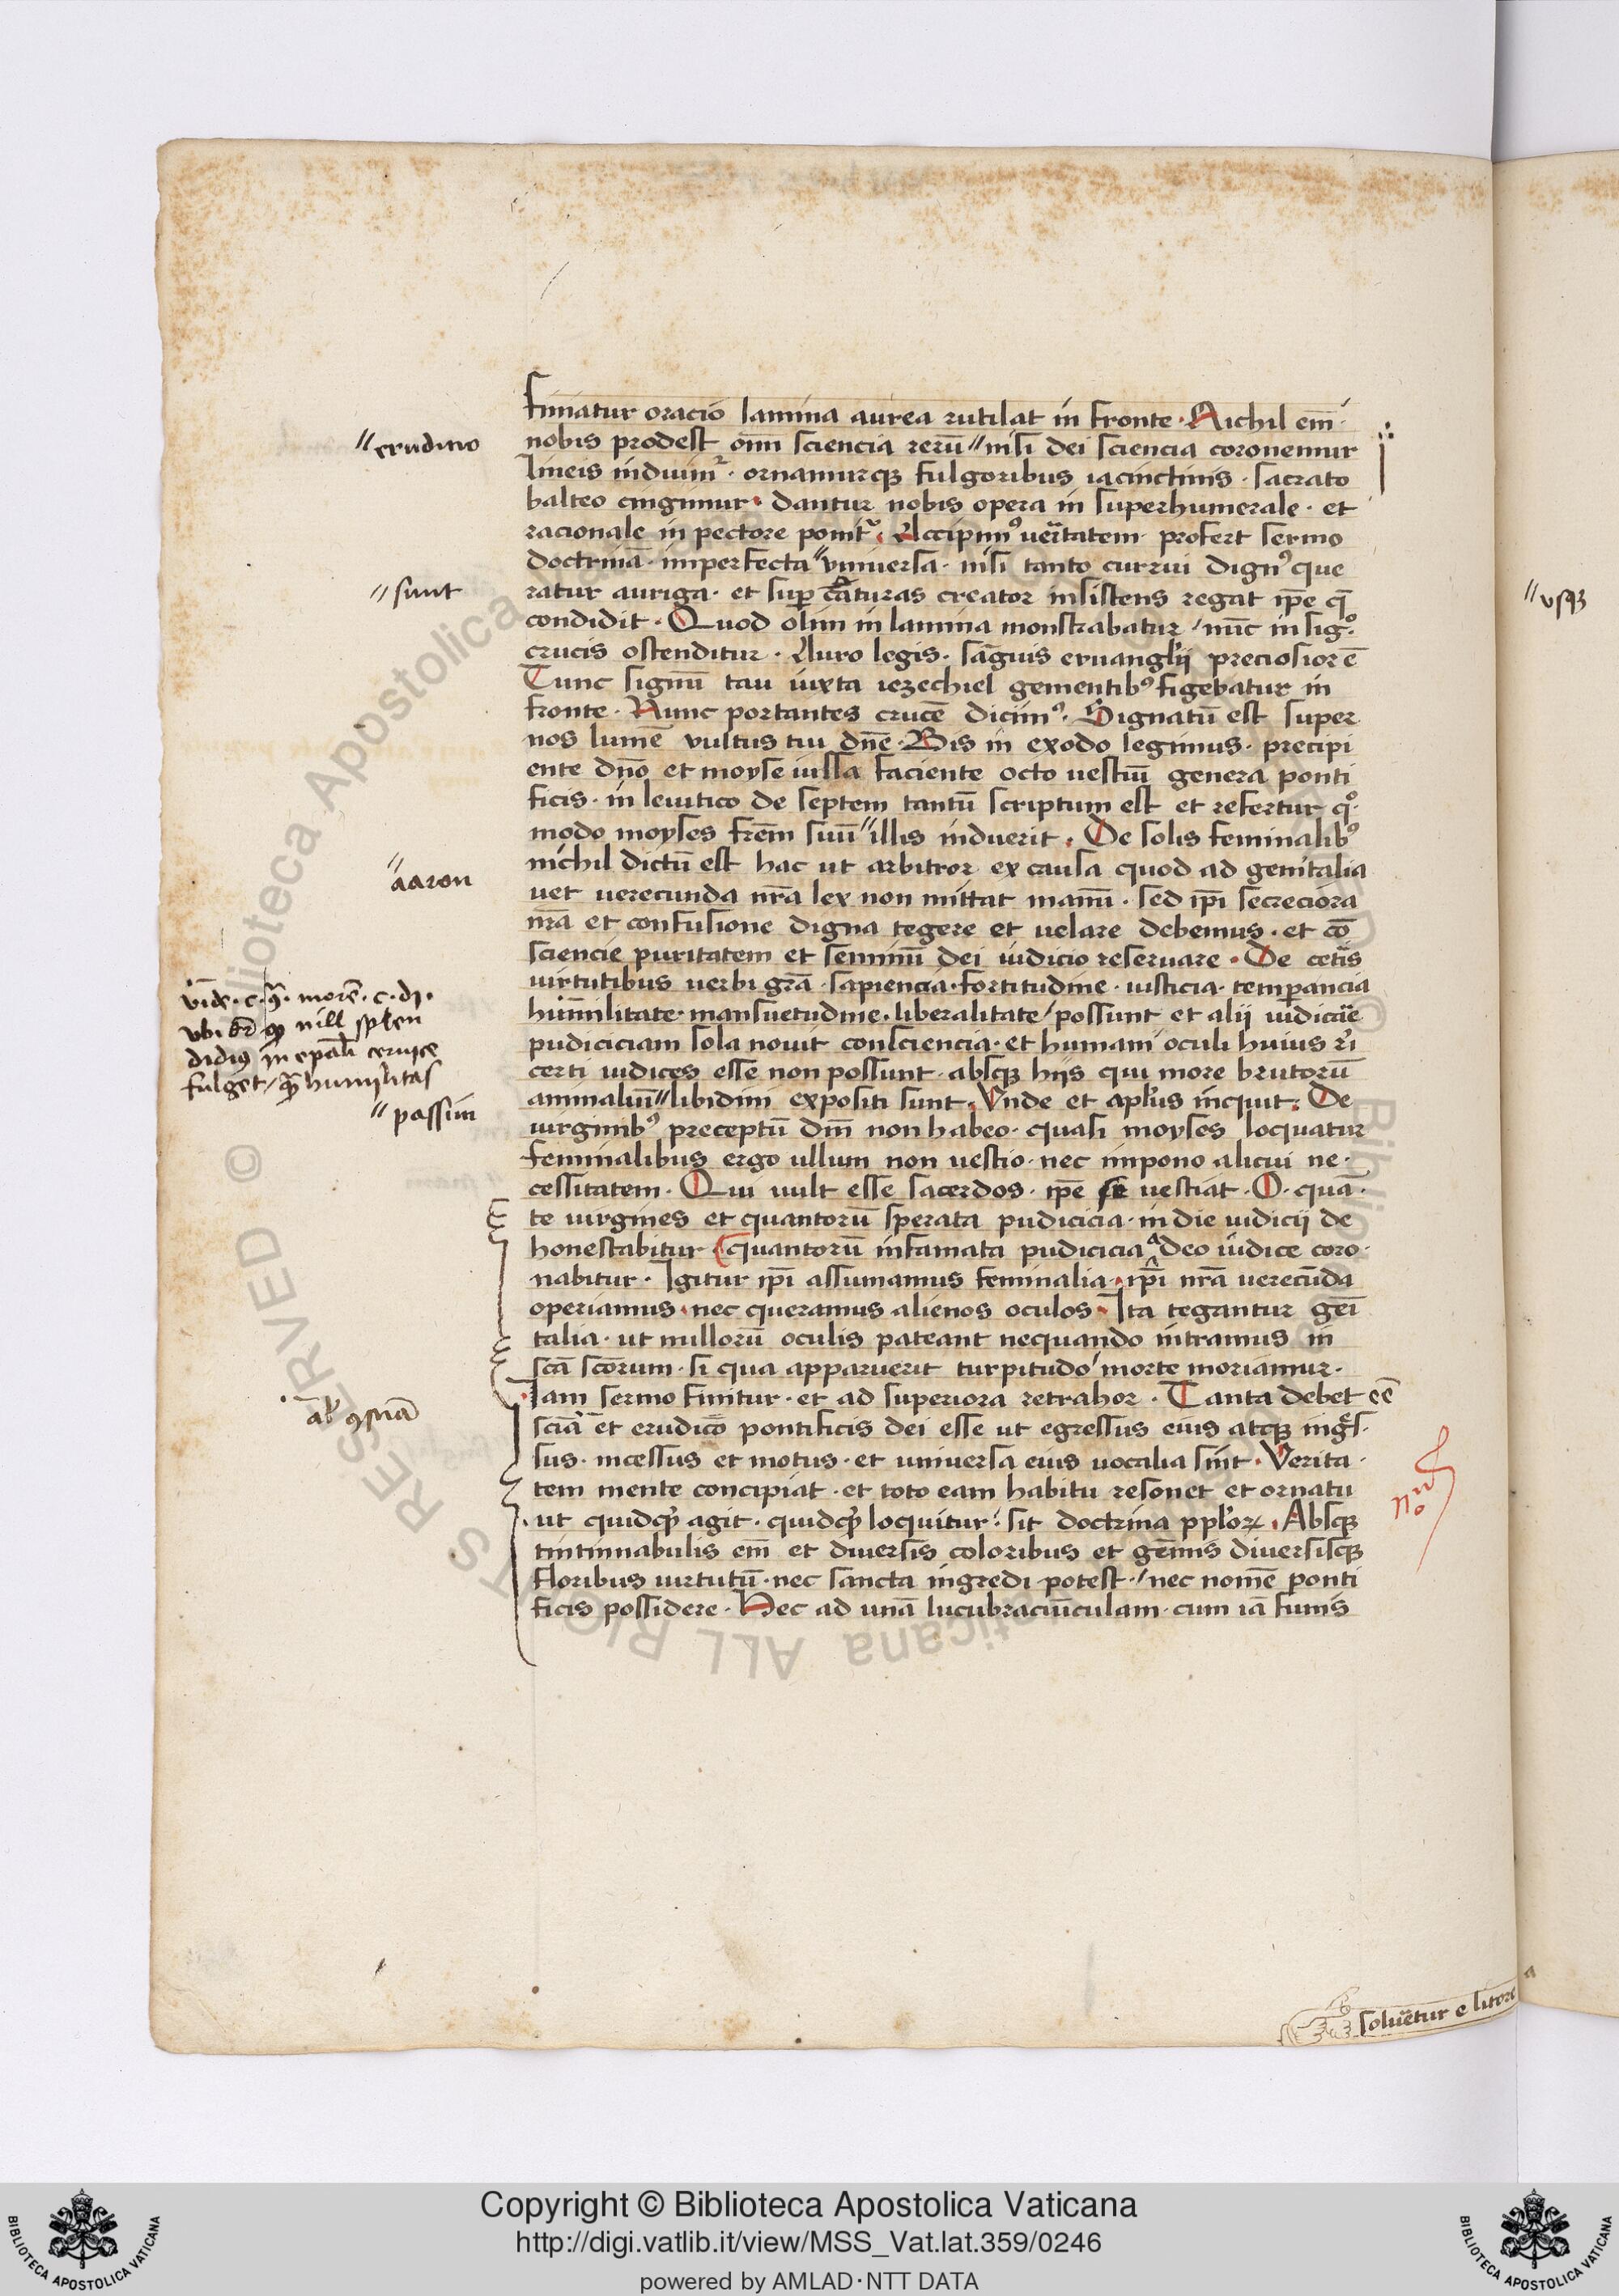 finiatur oracio lamina aurea rutilat in fronte · Nichil em̄ ·
// eruditio
nobis prodest om̄i sciencia rerū // nisi dei sciencia coronemur
lineis induim² · ornamurqꝫ fulgoribus iacinctinis · sacrato
balteo cingimur · dantur nobis opera in superhumerale · et
racionale in pectore ponit² · Accipimꝰ ueritatem · profert sermo
doctrinā · imperfecta // vniuersa · nisi tanto currui dignꝰ que
// sunt
ratur auriga · et suꝑ creaturas creator insistens regat ip̄e q̄
condidit · Quod olim in lamina monstrabatur / nūc in sigº ·
crucis ostenditur · Auro legis · sāguis euuanglij preciosior ē
Tunc signū tau iuxta iezechiel gementibꝰ figebatur in
fronte · Nunc portantes crucē dicimꝰ · Signatū est super
nos lumē vultus tui dn̄e · Bis in exodo legimus · precipi
ente dn̄o et moyse iussa faciente octo uestiū genera ponti
ficis · in leuitico de septem tantū scriptum est et refertur qº ·
modo moyses frēm suū // illis induerit · De solis feminalibꝰ
// aaron
nichil dictū est hac ut arbitror ex causa quod ad genitalia
uet uerecunda nr̄a lex non mittat manū · sed ip̄i secreciora
nr̄a et confusione digna tegere et uelare debemus · et cō
sciencie puritatem et seminū dei iudicio reseruare · De ceteris
uirtutibus uerbi grā · sapiencia · fortitudine · iusticia · temꝑancia
humilitate · mansuetudine · liberalitate / possunt et alij iudicare
pudiciciam sola nouit consciencia · et humani oculi huius rei
certi iudices esse non possunt · absqꝫ hijs qui more brutorū
animaliū // libidini expositi sunt · Vnde et aplus inquit · De
// passim
uirginibꝰ preceptū dn̄i non habeo · quasi moyses loquatur
feminalibus ergo ullum non uestio · nec impono alicui ne ·
cessitatem · Qui uult esse sacerdos · ip̄e se uestiat · O · quā ·
te uirgines et quantorū sperata pudicicia · in die iudicij de
honestabitur · quantorū infamata pudicicia a deo iudice coro ·
nabitur · Igitur ip̄i assumamus feminalia · ip̄i nr̄a uerecūda
operiamus · nec queramus alienos oculos · Ita tegantur geni
talia · ut nullorū oculis pateant nequando intramus in
scā scōrum · si qua apparuerit turpitudo / morte moriamur ·
Iam sermo finitur · et ad superiora retrahor · Tanta debet eē
sciā et erudicō pontificis dei esse ut egressus eius atqꝫ ingres ·
sus · incessus et motus · et uniuersa eius uocalia sint · Verita ·
tem mente concipiat · et toto eam habitu resonet et ornatu
· ut quidqꝫ agit · quidqꝫ loquitur · sit doctrina pplorꝝ · Absqꝫ
tintinnabulis em̄ et diuersis coloribus et gēmis diuersisqꝫ
floribus uirtutū · nec sancta ingredi potest · / nec nomē ponti
ficis possidere · Hec ad unā lucubraciūculam · cum iā funis
vbi br̄ ꝙ nill splen
didiꝰ in epāli ceruice
fulget / quā humilitas
soluētur e litore
// vsqꝫ
Copyright © Biblioteca Apostolica Vaticana
http://digi.vatlib.it/view/MSS_Vat.lat.359/0246
powered by AMLAD·NTT DATA
BIBLIOTECA APOSTOLICA VATICANA
BIBLIOTECA APOSTOLICA VATICANA